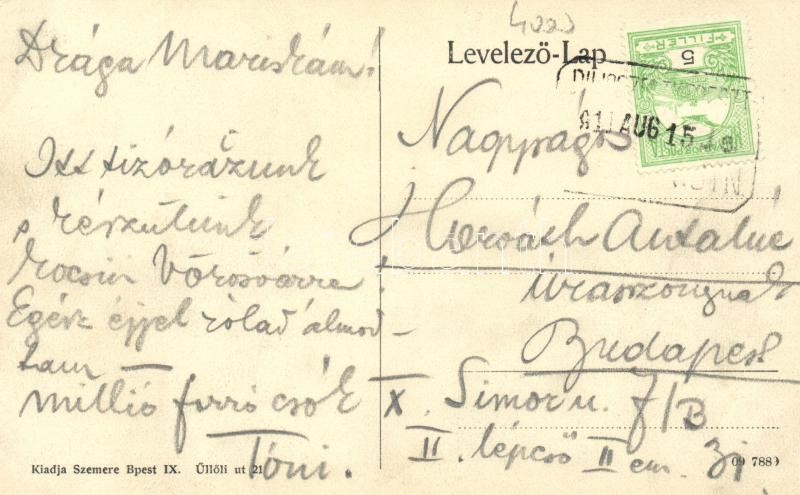 Drága Mariskám!
Itt tizórázunk
s készülünk
kocsin Vörösvárra!
Egész éjjel rólad álmod-
tam —
millió forró csók
Tóni.
Kiadja Szemere Bpest IX. Üllői ut 21
4000
Levelező-Lap
FILLÉR
5
911 AUG 15
Nagyságos
Horváth Antalné
úrasszonynak
Budapest
X. Simor u. 7/B
II. lépcső II em. 31
09 788